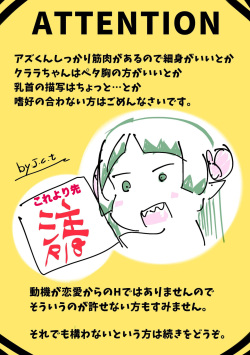 ATTENTION
アズくんしっかり筋肉があるので細身がいいとか
クララちゃんはペタ胸の方がいいとか
乳首の描写はちょっと…とか
嗜好の合わない方はごめんなさいです。
by J.c.t
これより先
注
動機が恋愛からのHではありませんので
そういうのが許せない方もすみません。
それでも構わないという方は続きをどうぞ。